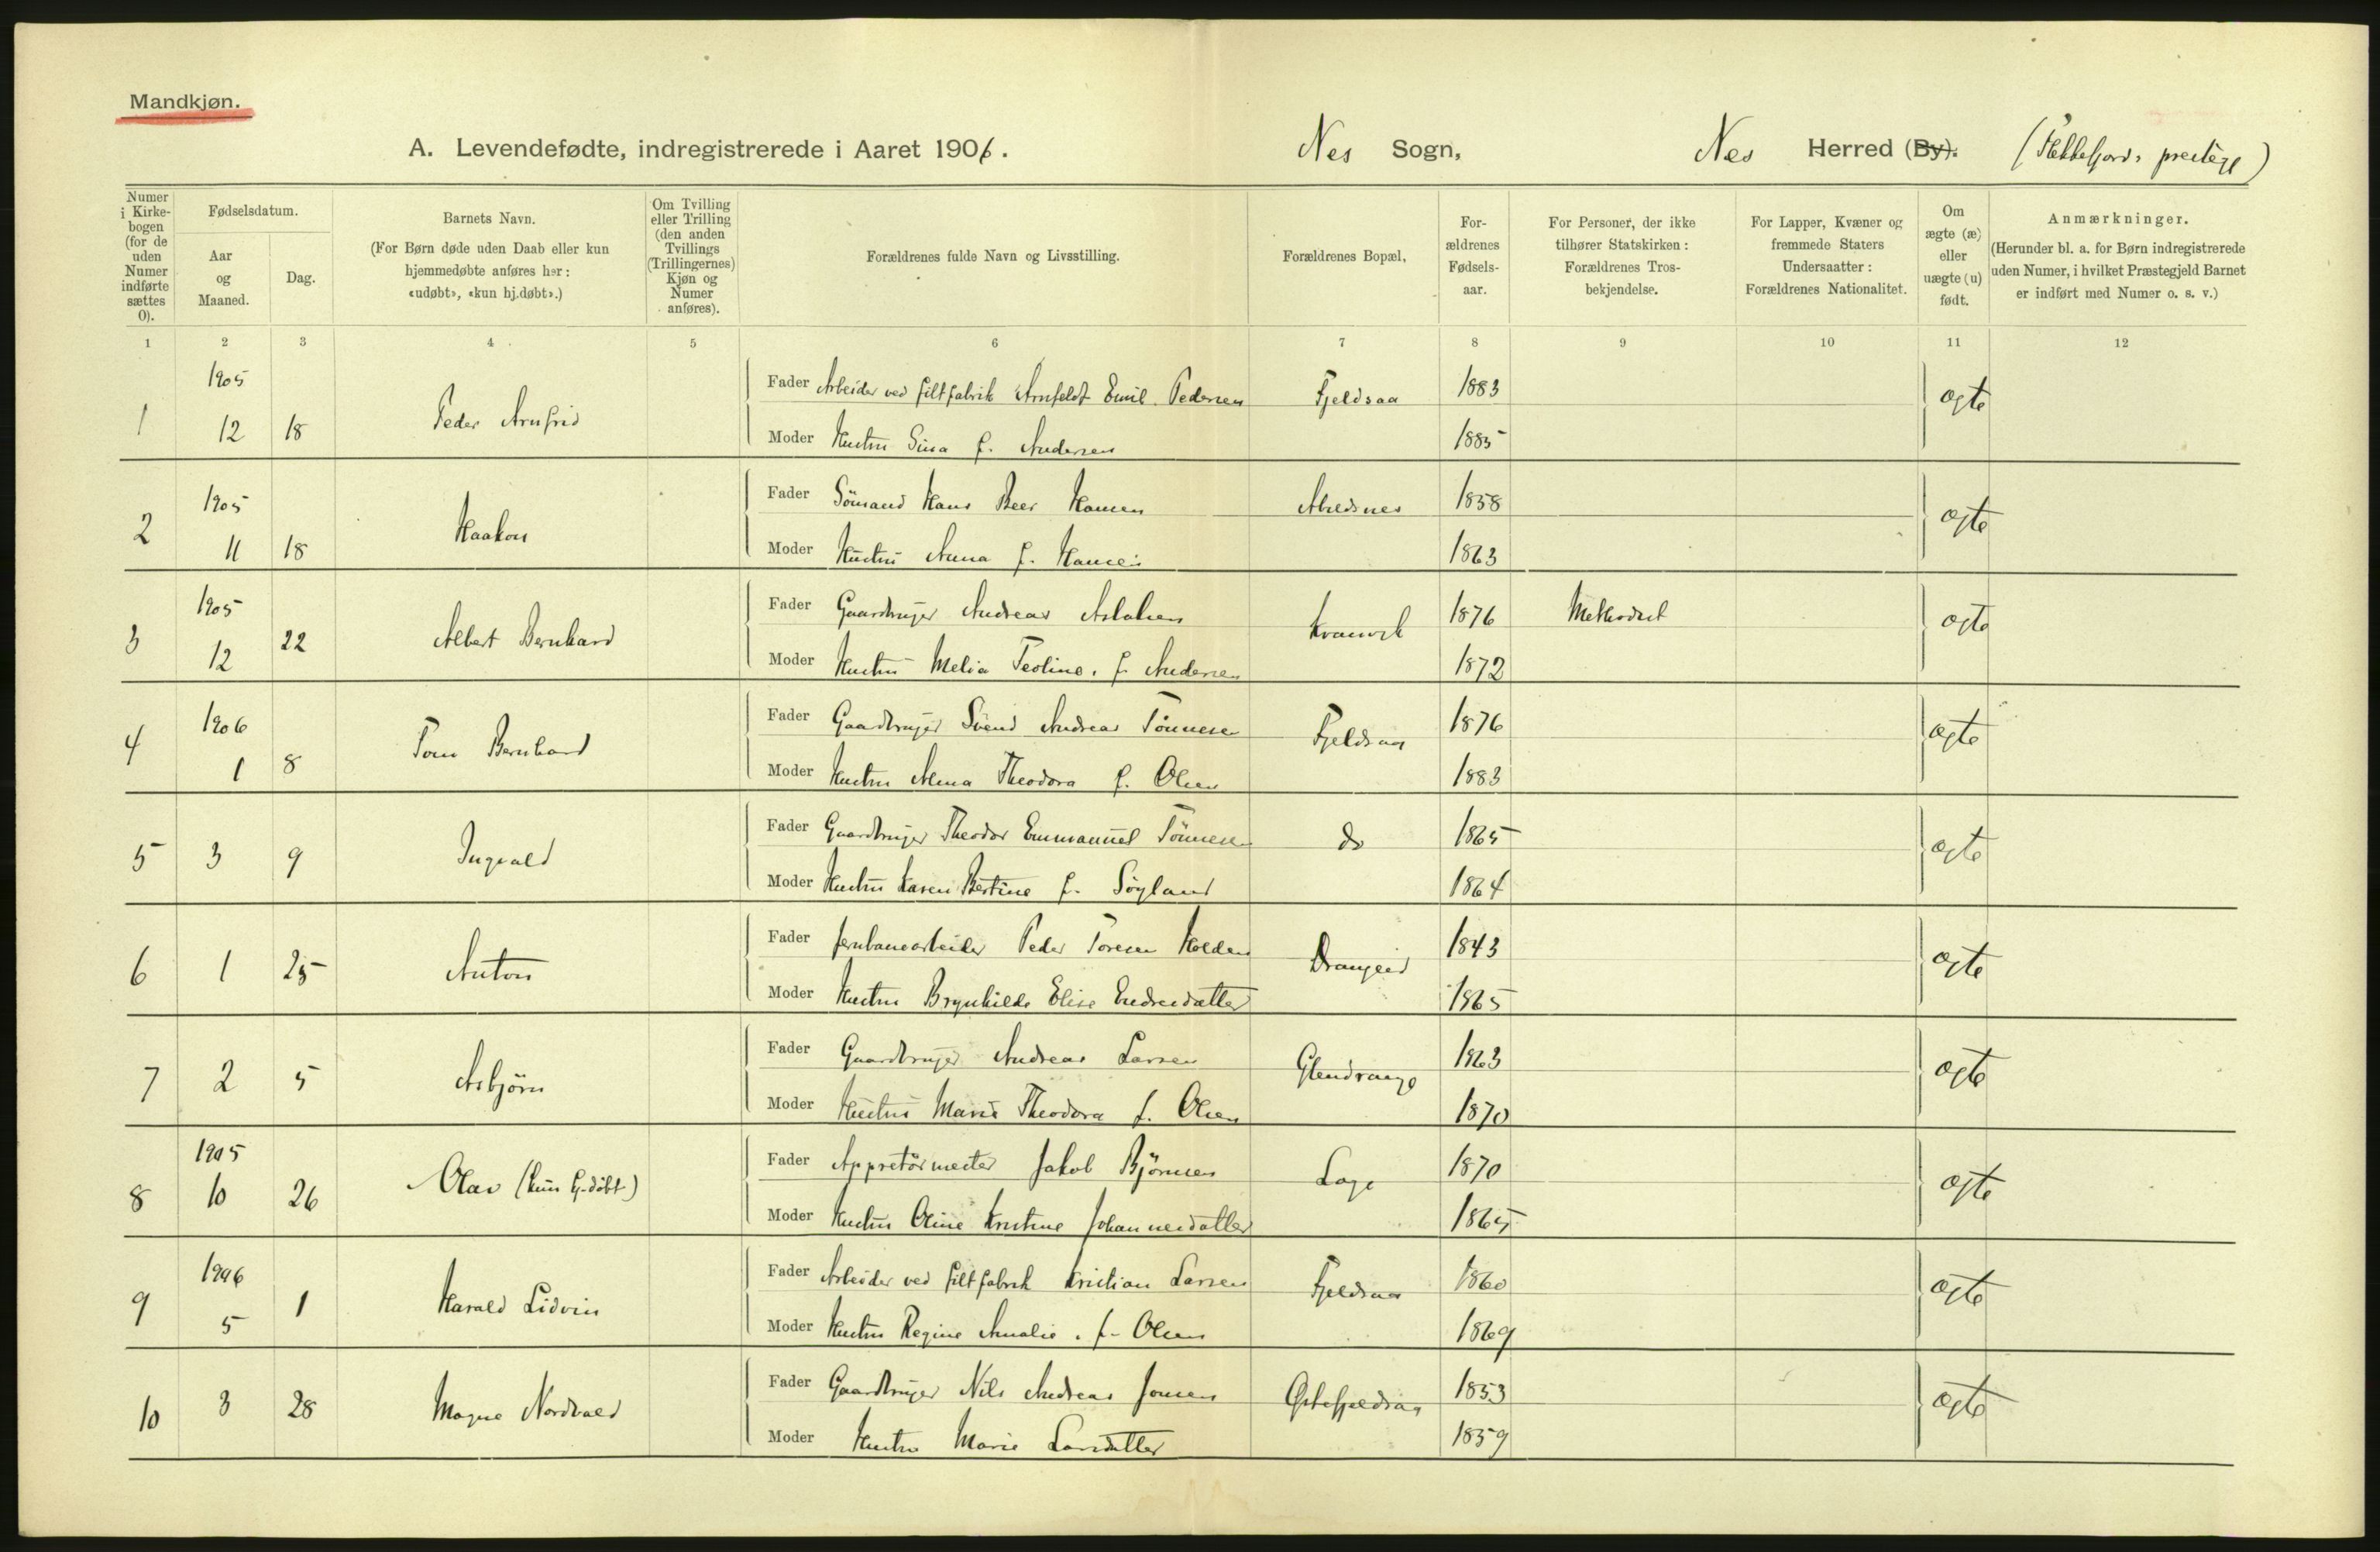 Mandkjøn.
A. Levendefødte, indregistrerede i Aaret 1906. Nes Sogn, Nes Herred (By). (Flekkefjords prestegj)
Numer i Kirkebogen (for de uden Numer indførte sættes 0).
Fødselsdatum.
Aar og Maaned.
Dag.
Barnets Navn.
(For Børn døde uden Daab eller kun hjemmedøbte anføres her: «udøbt», «kun hj.døbt».)
Om Tvilling eller Trilling (den anden Tvillings (Trillingernes) Kjøn og Numer anføres).
Forældrenes fulde Navn og Livsstilling.
Forældrenes Bopæl,
Forældrenes Fødselsaar.
For Personer, der ikke tilhører Statskirken: Forældrenes Trosbekjendelse.
For Lapper, Kvæner og fremmede Staters Undersaatter: Forældrenes Nationalitet.
Om ægte (æ) eller uægte (u) født.
Anmærkninger.
(Herunder bl. a. for Børn indregistrerede uden Numer, i hvilket Præstegjeld Barnet er indført med Numer o. s. v.)
1 2 3 4 5 6 7 8 9 10 11 12
1 1905 12 18 Peder Arnfrid Fader Arbeider ved filtfabrik Arnfeldt Emil Pedersen Fjeldsaa 1883 ægte
Moder Hustru Sina f. Andersen 1885
2 1905 11 18 Haakon Fader Sömand Hans Beer Hansen Abelsnes 1858 ægte
Moder Hustru Anna f. Hansen 1863
3 1905 12 22 Albert Bernhard Fader Gaardbruger Andreas Aslaksen Kvanvik 1876 Methodist ægte
Moder Hustru Melia Teoline f. Andersen 1872
4 1906 1 8 Tom Bernhard Fader Gaardbruger Svend Andreas Tönnesen Fjeldsaa 1876 ægte
Moder Hustru Alma Theodora f. Olsen 1883
5 3 9 Ingvald Fader Gaardbruger Theodor Emmanuel Tönnesen do 1865 ægte
Moder Hustru Karen Bertine f. Söyland 1864
6 1 25 Anton Fader Jernbanearbeider Peder Toresen Holden Drangeid 1843 ægte
Moder Hustru Brynhilde Elise Endresdatter 1865
7 2 5 Asbjörn Fader Gaardbruger Andreas Larsen Glendrange 1863 ægte
Moder Hustru Marie Theodora f. Olsen 1870
8 1905 10 26 Olav (kun hj.döbt) Fader Appretörmester Jakob Björnsen Loge 1870 ægte
Moder Hustru Oline Kristine Johannesdatter 1865
9 1906 5 1 Harald Lidvin Fader Arbeider ved filtfabrik Kristian Larsen Fjeldsaa 1860 ægte
Moder Hustru Regine Amalie f. Olsen 1869
10 3 28 Magne Nordvald Fader Gaardbruger Nils Andreas Jonsen Østefjeldsaa 1853 ægte
Moder Hustru Marie Larsdatter 1859